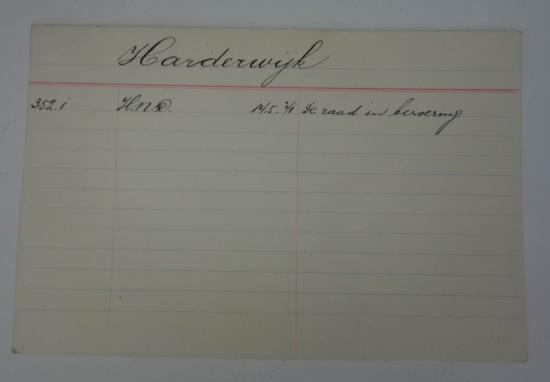 Harderwijk
352.i H.N.D. 14.5.'41 De raad in beroering